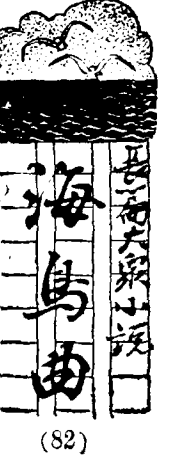 長篇大衆小説
海鳥曲
(82)